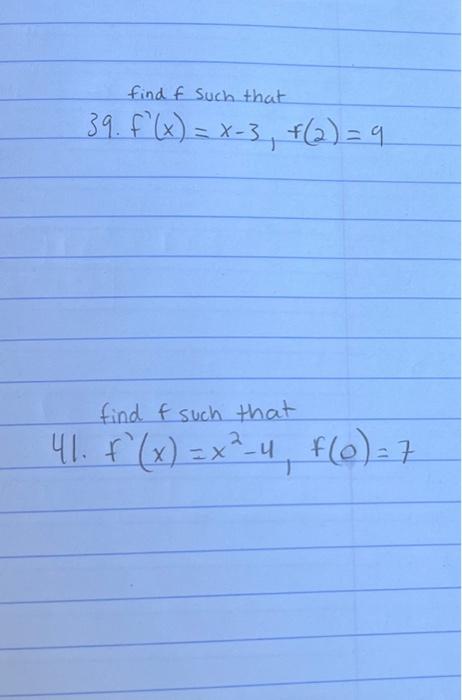 find f such that
39. f`(x) = x-3, f(2) = 9
find f such that
41. f`(x) = x²-4, f(0) = 7